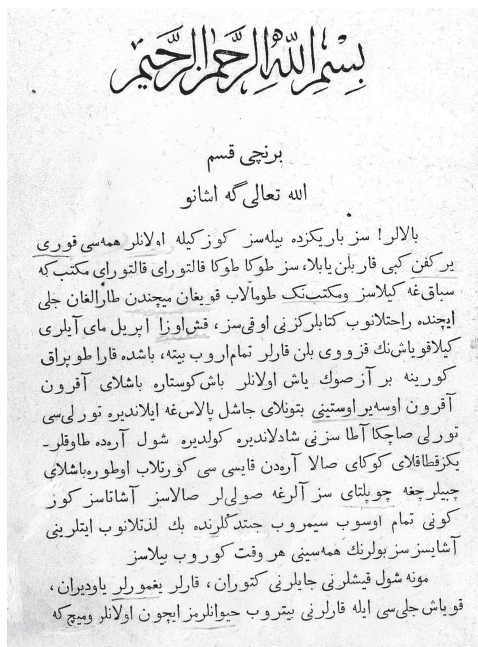 بِسْمِ اللّٰهِ الرَّحْمٰنِ الرَّحِيْمِ
برنچى قسم
الله تعالى گه اشانو
بالالر! سز باریكزده بیله‌سز كوز كیله اولانلر همه‌سى قورى
یر كفن كبى قار بلن یابلا، سز طوكا طوكا قالتوراى قالتوراى مكتب كه
سباق‌غه كیلاسز ومكتب‌نك طومالاب قویغان میچندن طارالغان جلى
ایچنده راحتلانوب كتابلركزنى اوقى‌سز، قش‌اوزا اپریل ماى آیلرى
كیلا قویاش‌نك قزووى بلن قارلر تمام‌اروب بیته، باشده قارا طوپراق
كورینه بر آز صوك یاش اولانلر باش كوستاره باشلاى آقرون
آقرون اوسه‌یر اوستینى بتونلاى جاشل پالاس‌غه ایلاندیره تورلى‌سى
تورلى صاچكا آطا سزنى شادلاندیره كولدیره شول آره‌ده طاوقلر-
یكز قطاقلاى كوكاى صالا آره‌دن قایسى سى كورتلاب اوطوره‌باشلاى
چیبلرچغه چوپلتاى سز آلرغه صولى‌لر صالاسز آشاتاسز كوز
كونى تمام اوسوب سیمروب جیتدكلرنده بك لذتلانوب ایتلرینى
آشایسز سز بولرنك همه‌سینى هر وقت كوروب بیلاسز
مونه شول قیشلرنى جایلرنى كتوران، قارلر یغمورلر یاودیران،
قویاش جلى‌سى ایله قارلرنى بیتروب حیوانلرمز ایچون اولانلر ومیچ كه